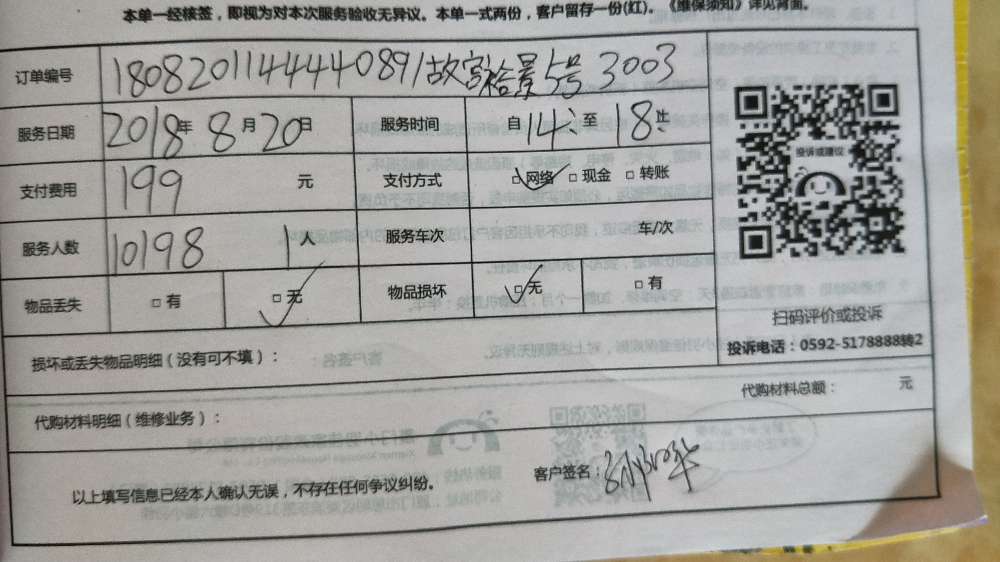 本单一经核签，即视为对本次服务验收无异议。本单一式两份，客户留存一份(红)。《维保须知》详见背面。
订单编号 180820114444089 / 故宫裕景5号 3003
服务日期 2018年 8月 20日 服务时间 自 14 至 18 止
支付费用 199 元 支付方式 □网络 □现金 □转账
服务人数 10198 1人 服务车次 车/次
物品丢失 □有 □无 物品损坏 □无 □有
投诉或建议
扫码评价或投诉
投诉电话：0592-5178888转2
损坏或丢失物品明细（没有可不填）：
代购材料明细（维修业务）： 代购材料总额： 元
以上填写信息已经本人确认无误，不存在任何争议纠纷。 客户签名：